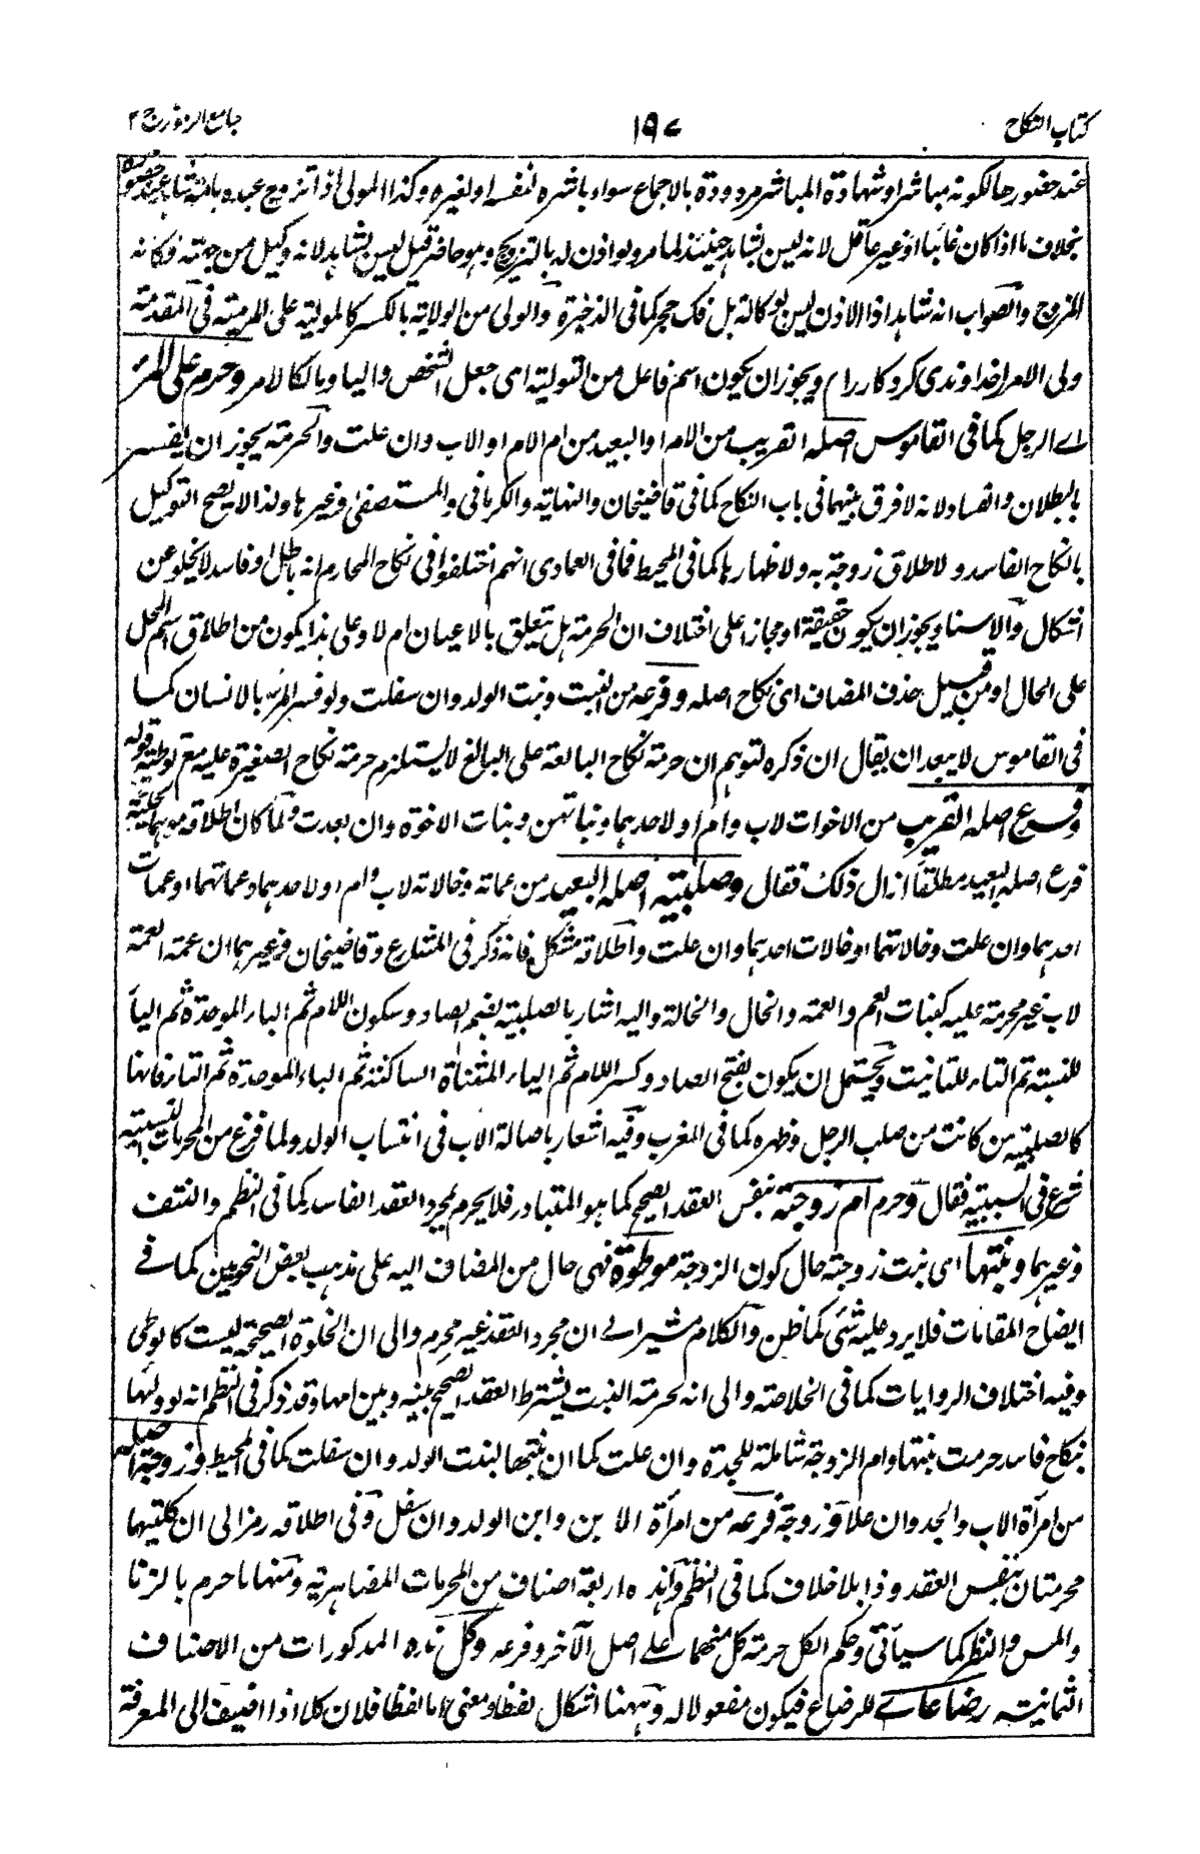 كتاب النكاح
١٩٧
جامع الرموز ج ٢
عند حضورها لكونه مباشرا وشهادة المباشر مردودة بالاجماع سواء باشره لنفسه او لغيره وكذا المولى اذا تزوج عبده بالغة شاهد بحضوره
بخلاف ما اذا كان غائبا او غير عاقل لانه ليس بشاهد حينئذ لما مر ولو اذن له بالتزويج وهو حاضر قيل ليس بشاهد لانه وكيل من جهته فكانه
المزوج والصواب انه شاهد اذ الاذن ليس بوكالة بل فك حجر كما في الذخيرة والولى من الولاية بالكسر كالمولية على المرمية في المقدمة
ولى الامر خداوندى كرد كار را م ويجوز ان يكون اسم فاعل من التولية اى جعل الشخص واليا ومالكا لامر وحرم على المرء
اے الرجل كما في القاموس اصله القريب من الام او البعيد من ام الام او الاب وان علت والحرمة يجوز ان يفسر
بالبطلان والفساد لانه لا فرق بينهما في باب النكاح كما في قاضيخان والنهاية والكرماني والمستصفى وغيرها ولذا لا يصح التوكيل
بالنكاح الفاسد ولا طلاق زوجة به ولا ظهارها كما في المحيط فما في العمادى انهم اختلفوا في نكاح المحارم انه باطل او فاسد لا يخلو عن
اشكال والاسناد يجوز ان يكون حقيقة او مجازا على اختلاف ان الحرمة هل تتعلق بالاعيان ام لا وعلى هذا يكون من اطلاق اسم المحل
على الحال او من قبيل حذف المضاف اى نكاح اصله وفرعه من البنت وبنت الولد وان سفلت ولو فسر المرء بالانسان كما
في القاموس لا يبعد ان يقال ان ذكره لتوهم ان حرمة نكاح البالغة على البالغ لا يستلزم حرمة نكاح الصغيرة عليه مع توطئة قوله
وفرع اصله القريب من الاخوات لاب وام او لاحدهما وبناتهن وبنات الاخوة وان بعدت ولما كان اطلاقه موهما حلية
فرع اصله البعيد مطلقا ازال ذلك فقال وصلبية اصله البعيد من عماته وخالاته لاب وام او لاحدهما وعماتهما او عمات
احدهما وان علت وخالاتهما او خالات احدهما وان علت واطلاقه مشكل فانه ذكر في المشارع وقاضيخان وغيرهما ان عمة العمة
لاب غير محرمة عليه كبنات العم والعمة والخال والخالة واليه اشار بالصلبية بضم الصاد وسكون اللام ثم الباء الموحدة ثم اليأ
للنسبة ثم التاء للتانيث ويحتمل ان يكون بفتح الصاد وكسر اللام ثم الياء المثناة الساكنة ثم الباء الموحدة ثم التاء فانها
كالصلبية من كانت من صلب الرجل وظهره كما في المغرب وفيه اشعار باصالة الاب في انتساب الولد ولما فرغ من المحرمات النسبية
شرع في السببية فقال وحرم ام زوجته بنفس العقد الصحيح كما هو المتبادر فلا يحرم بمجرد العقد الفاسد كما في النظم والنتف
وغيرهما وبنتها اى بنت زوجته حال كون الزوجة موطوءة فهى حال من المضاف اليه على مذهب بعض النحويين كما في
ايضاح المقامات فلا يرد عليه شئ كما ظن والكلام مشير الے ان مجرد العقد غير محرم والى ان الخلوة الصحيحة ليست كالوطى
وفيه اختلاف الروايات كما في الخلاصة والى انه لحرمة البنت يشترط العقد الصحيح بينه وبين امها وقد ذكر في النظم انه لو وطئها
بنكاح فاسد حرمت بنتها وام الزوجة شاملة للجدة وان علت كما ان بنتها لبنت الولد وان سفلت كما في المحيط وزوجة اصله
من امرأة الاب والجد وان علا وزوجة فرعه من امرأة الابن وابن الولد وان سفل وفى اطلاقه رمز الى ان كلتيهما
محرمتان بنفس العقد وذا بلا خلاف كما في النظم وهذه اربعة اصناف من المحرمات المصاهرية ومنها ما حرم بالزنا
والمس والنظر كما سيأتي وحكم الكل حرمة كل منهما على اصل الآخر وفرعه وكل هذه المذكورات من الاصناف
الثمانية رضاعا اے للرضاع فيكون مفعولا له وههنا اشكال لفظا ومعنى اما لفظا فلان كلا اذا اضيف الى المعرفة